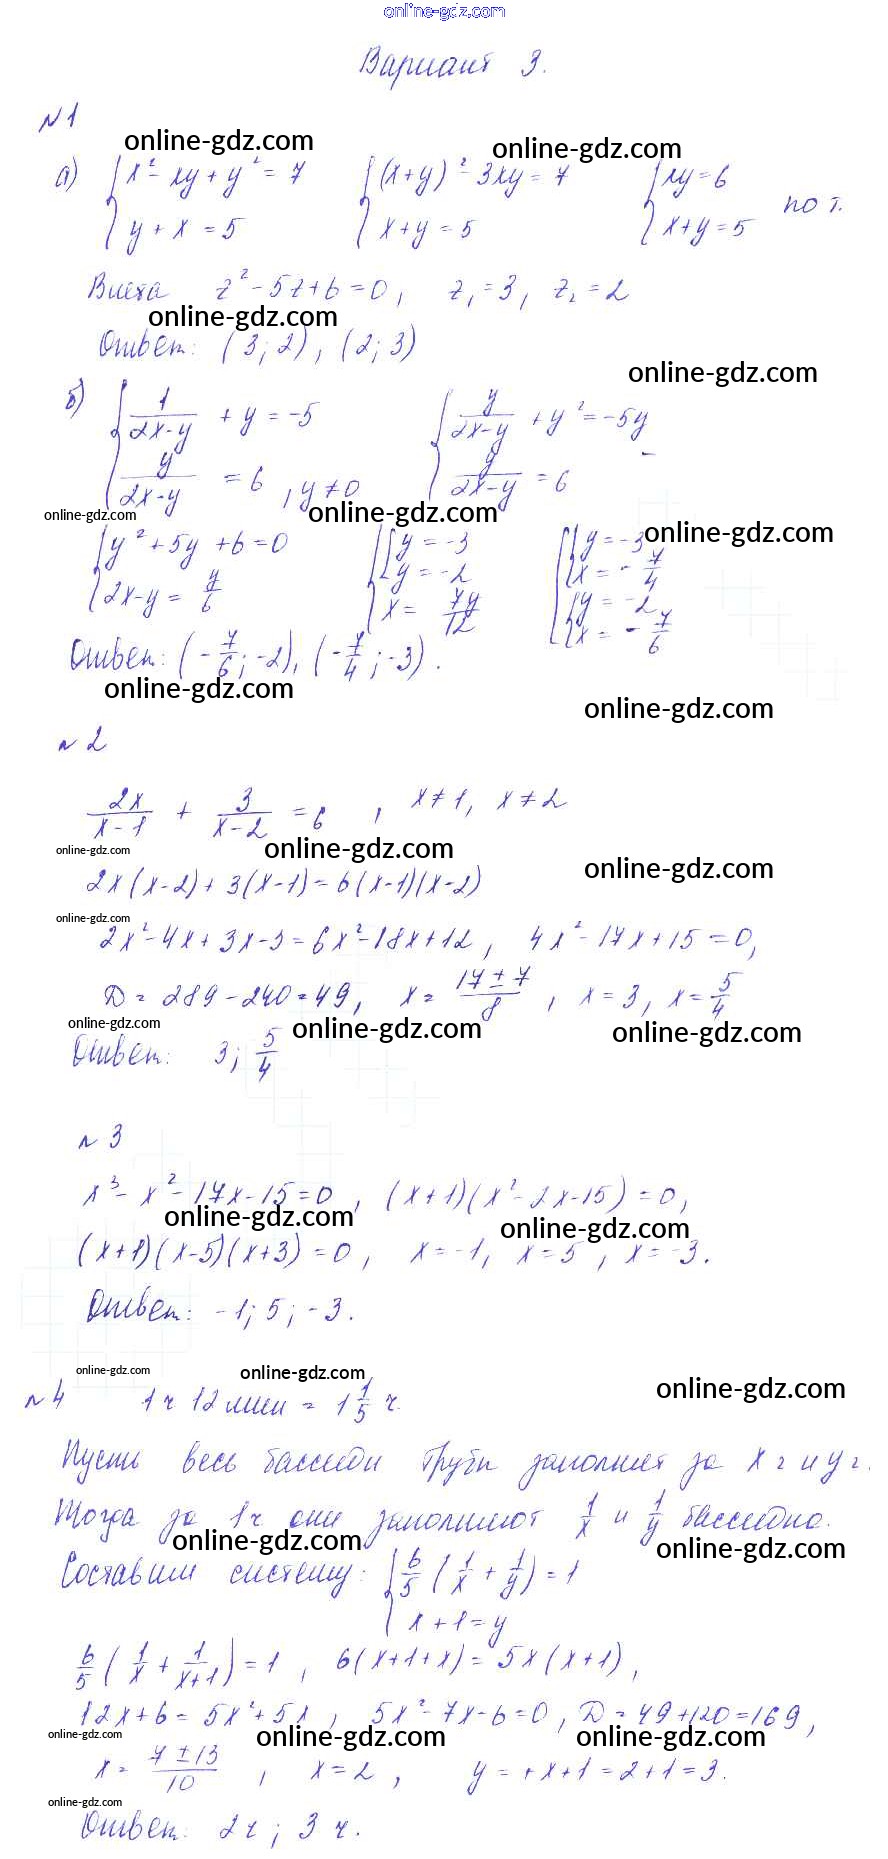 online-gdz.com
Вариант 3.
№1
online-gdz.com online-gdz.com
а) { x² - xy + y² = 7 { (x+y)² - 3xy = 7 { xy = 6
{ y + x = 5 { x+y = 5 { x+y = 5 по т.
Виета z² - 5z + 6 = 0, z₁ = 3, z₂ = 2
online-gdz.com
Ответ: (3; 2), (2; 3)
online-gdz.com
б) { 1/(2x-y) + y = -5 { y/(2x-y) + y² = -5y
{ y/(2x-y) = 6, y ≠ 0 { y/(2x-y) = 6
online-gdz.com online-gdz.com online-gdz.com
{ y² + 5y + 6 = 0 { [ y = -3 [ { y = -3
{ 2x-y = y/6 { [ y = -2 [ { x = -7/4
{ x = 7y/12 [ { y = -2
[ { x = -7/6
Ответ: (-7/6; -2), (-7/4; -3).
online-gdz.com online-gdz.com
№2
2x/(x-1) + 3/(x-2) = 6, x ≠ 1, x ≠ 2
online-gdz.com online-gdz.com online-gdz.com
2x(x-2) + 3(x-1) = 6(x-1)(x-2)
online-gdz.com
2x² - 4x + 3x - 3 = 6x² - 18x + 12, 4x² - 17x + 15 = 0,
D = 289 - 240 = 49, x = (17 ± 7)/8, x = 3, x = 5/4
online-gdz.com online-gdz.com online-gdz.com
Ответ: 3; 5/4
№3
x³ - x² - 17x - 15 = 0, (x+1)(x² - 2x - 15) = 0,
online-gdz.com online-gdz.com
(x+1)(x-5)(x+3) = 0, x = -1, x = 5, x = -3.
Ответ: -1; 5; -3.
online-gdz.com online-gdz.com online-gdz.com
№4 1 ч 12 мин = 1 1/5 ч.
Пусть весь бассейн трубы заполнят за x ч и y ч.
Тогда за 1 ч они заполняют 1/x и 1/y бассейна.
online-gdz.com online-gdz.com
Составим систему: { 6/5 (1/x + 1/y) = 1
{ x + 1 = y
6/5 (1/x + 1/(x+1)) = 1, 6(x+1+x) = 5x(x+1),
12x + 6 = 5x² + 5x, 5x² - 7x - 6 = 0, D = 49 + 120 = 169,
online-gdz.com online-gdz.com online-gdz.com
x = (7 ± 13)/10, x = 2, y = x + 1 = 2 + 1 = 3.
online-gdz.com
Ответ: 2 ч; 3 ч.